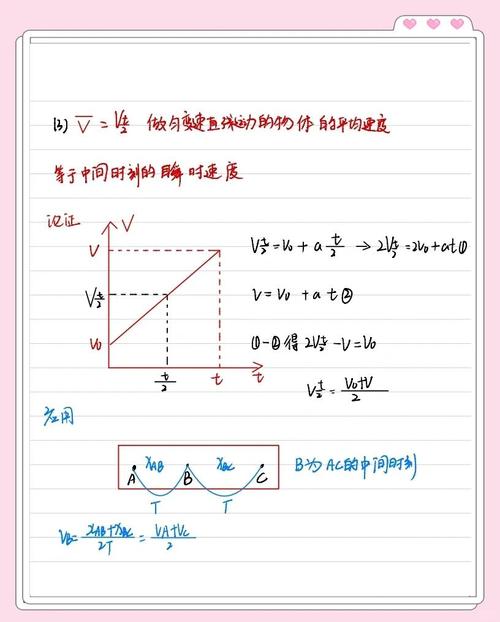 (3) V̅ = V_{t/2} 做匀变速直线运动的物体的平均速度
等于中间时刻的瞬时速度
论证
V
V
V_{t/2}
V₀
t/2 t t
V_{t/2} = V₀ + a t/2 → 2V_{t/2} = 2V₀ + at ①
V = V₀ + at ②
①-②得 2V_{t/2} - V = V₀
V_{t/2} = (V₀+V)/2
应用
x_{AB} x_{BC}
A B C
T T
B为AC的中间时刻
V_B = (x_{AB}+x_{BC})/2T = (V_A+V_C)/2